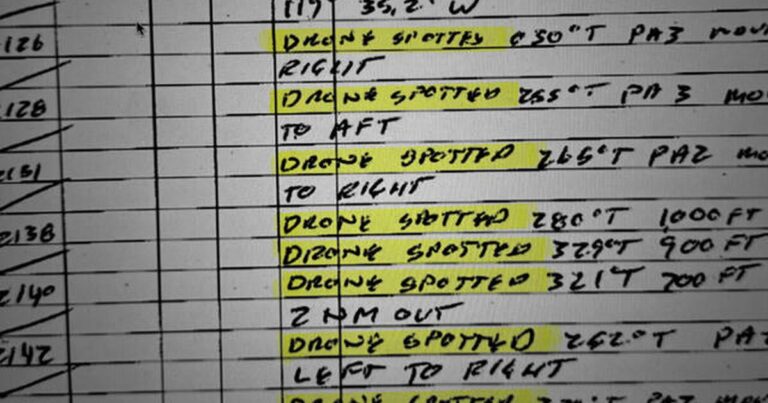 119° 35.2' W
2126 DRONE SPOTTED 030°T PA3
RIGHT
2128 DRONE SPOTTED 255°T PA 3
TO AFT
DRONE SPOTTED 265°T PA2
TO RIGHT
2138 DRONE SPOTTED 280°T 1000 FT
DRONE SPOTTED 329°T 900 FT
2140 DRONE SPOTTED 321°T 700 FT
2 NM OUT
2142 DRONE SPOTTED 262°T
LEFT TO RIGHT
DRONE SPOTTED